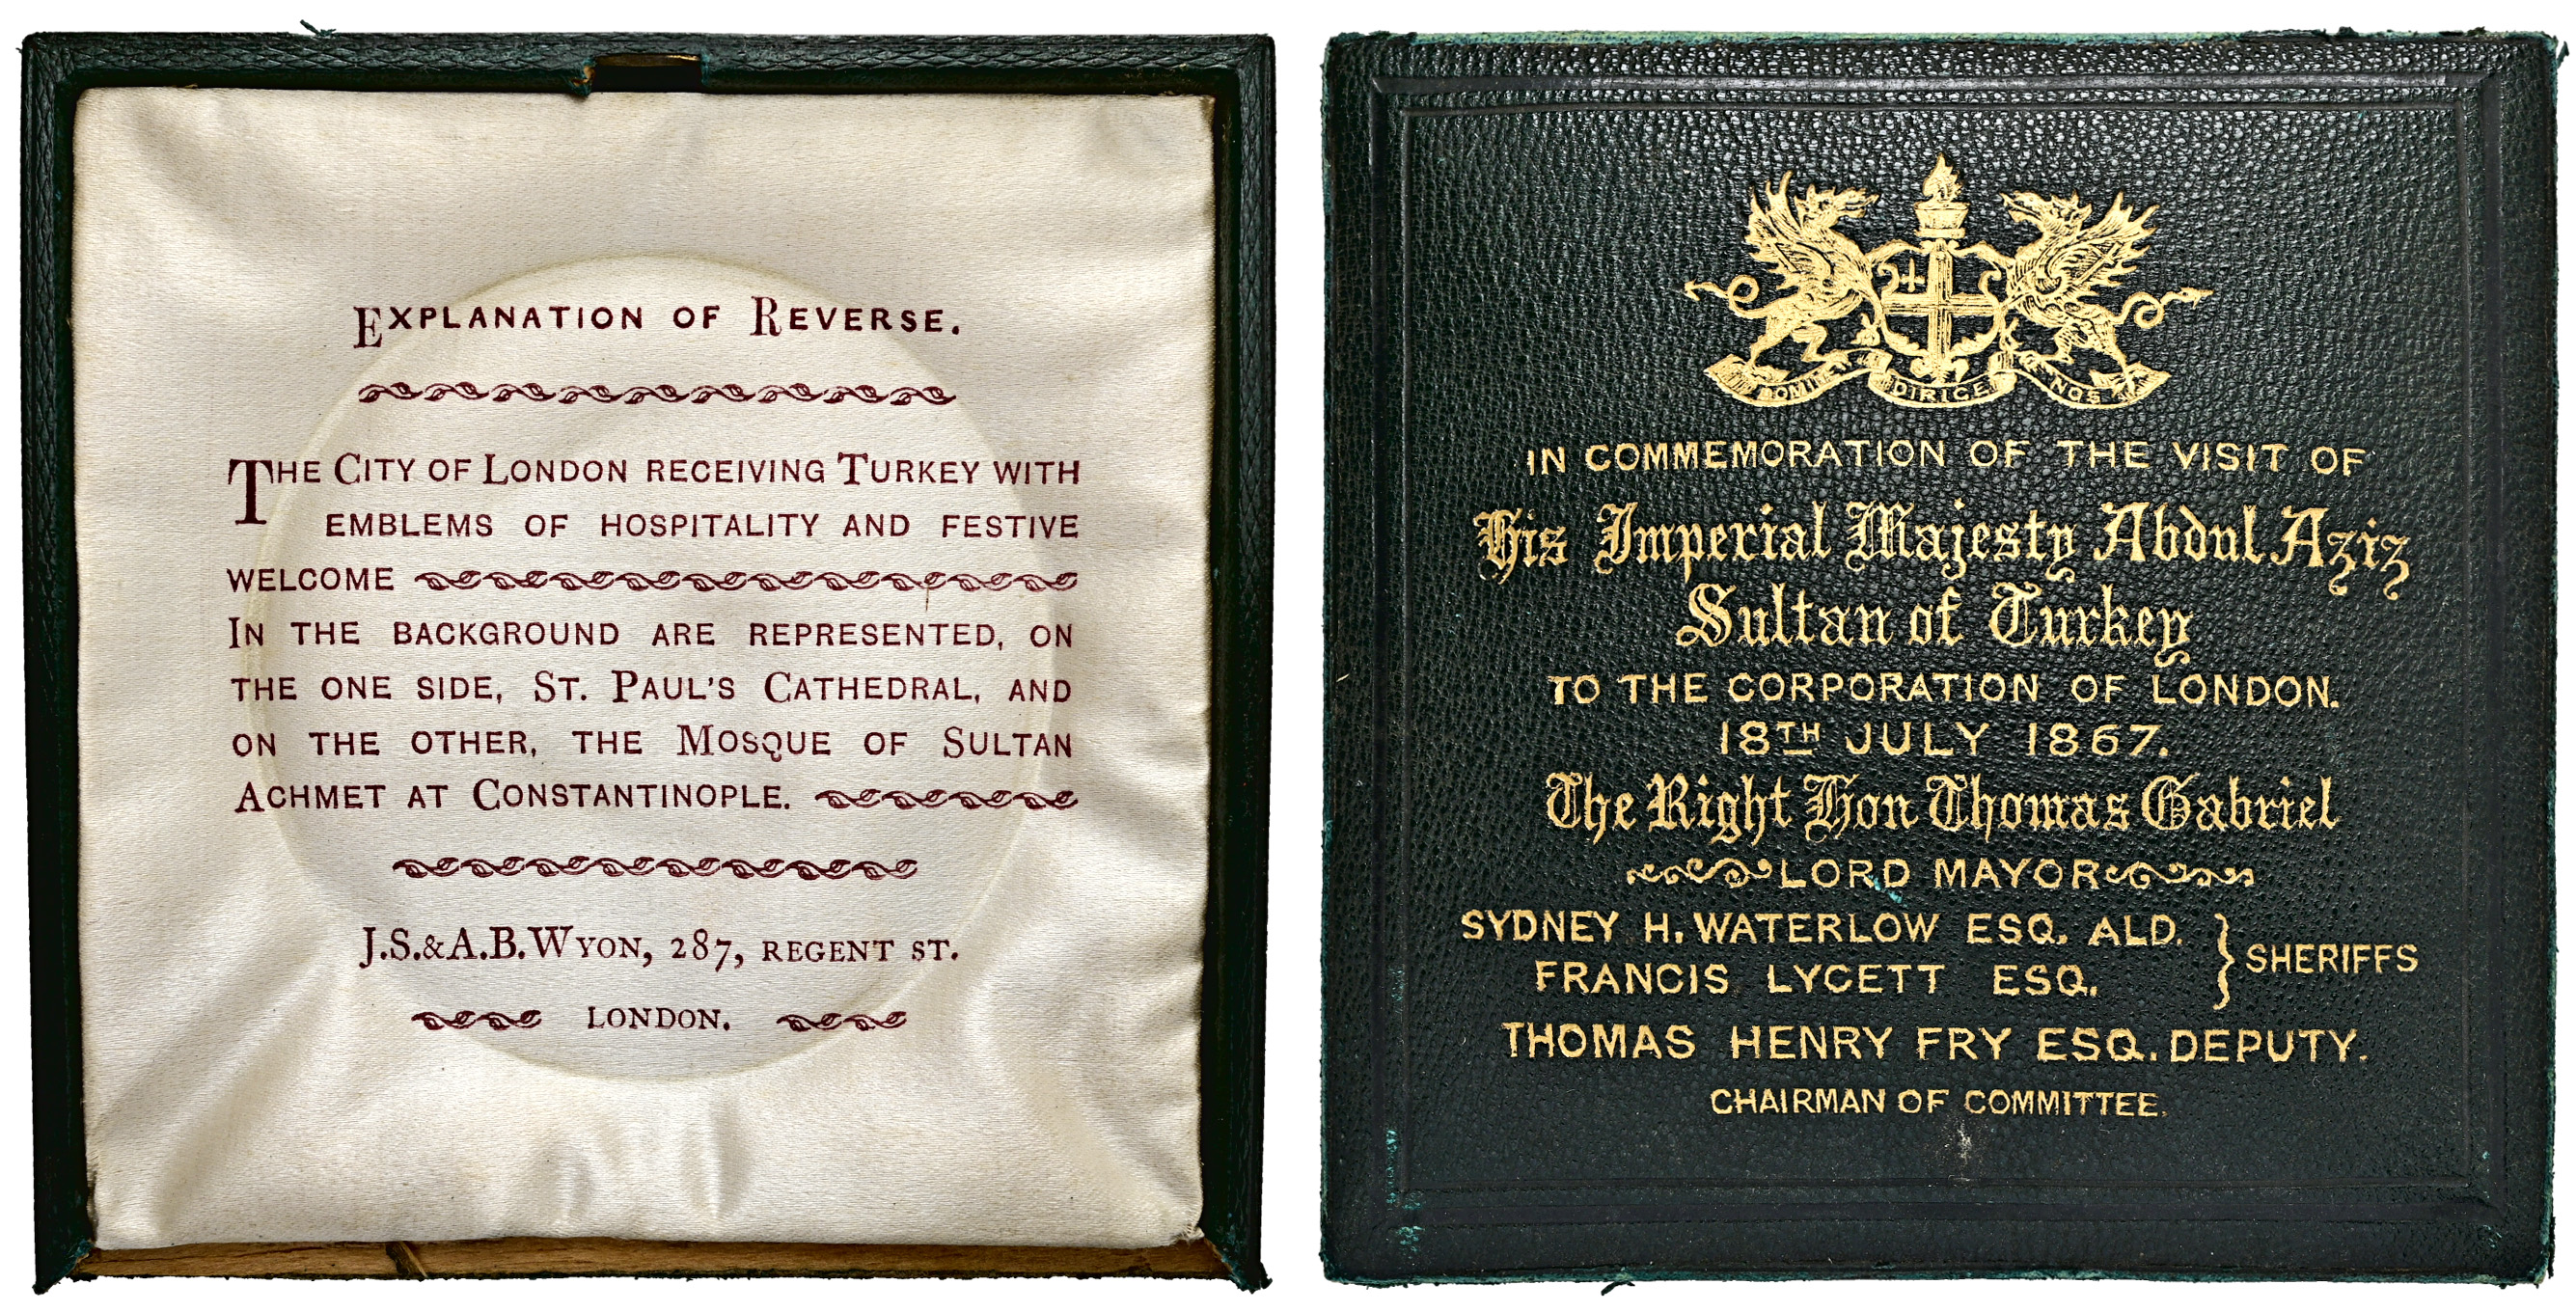 EXPLANATION OF REVERSE.
THE CITY OF LONDON RECEIVING TURKEY WITH
EMBLEMS OF HOSPITALITY AND FESTIVE
WELCOME
IN THE BACKGROUND ARE REPRESENTED, ON
THE ONE SIDE, ST. PAUL'S CATHEDRAL, AND
ON THE OTHER, THE MOSQUE OF SULTAN
ACHMET AT CONSTANTINOPLE.
J.S.&A.B.WYON, 287, REGENT ST.
LONDON.
DOMINE DIRIGE NOS
IN COMMEMORATION OF THE VISIT OF
His Imperial Majesty Abdul Aziz
Sultan of Turkey
TO THE CORPORATION OF LONDON.
18TH JULY 1867.
The Right Hon Thomas Gabriel
LORD MAYOR
SYDNEY H. WATERLOW ESQ. ALD.
FRANCIS LYCETT ESQ.
SHERIFFS
THOMAS HENRY FRY ESQ. DEPUTY.
CHAIRMAN OF COMMITTEE.